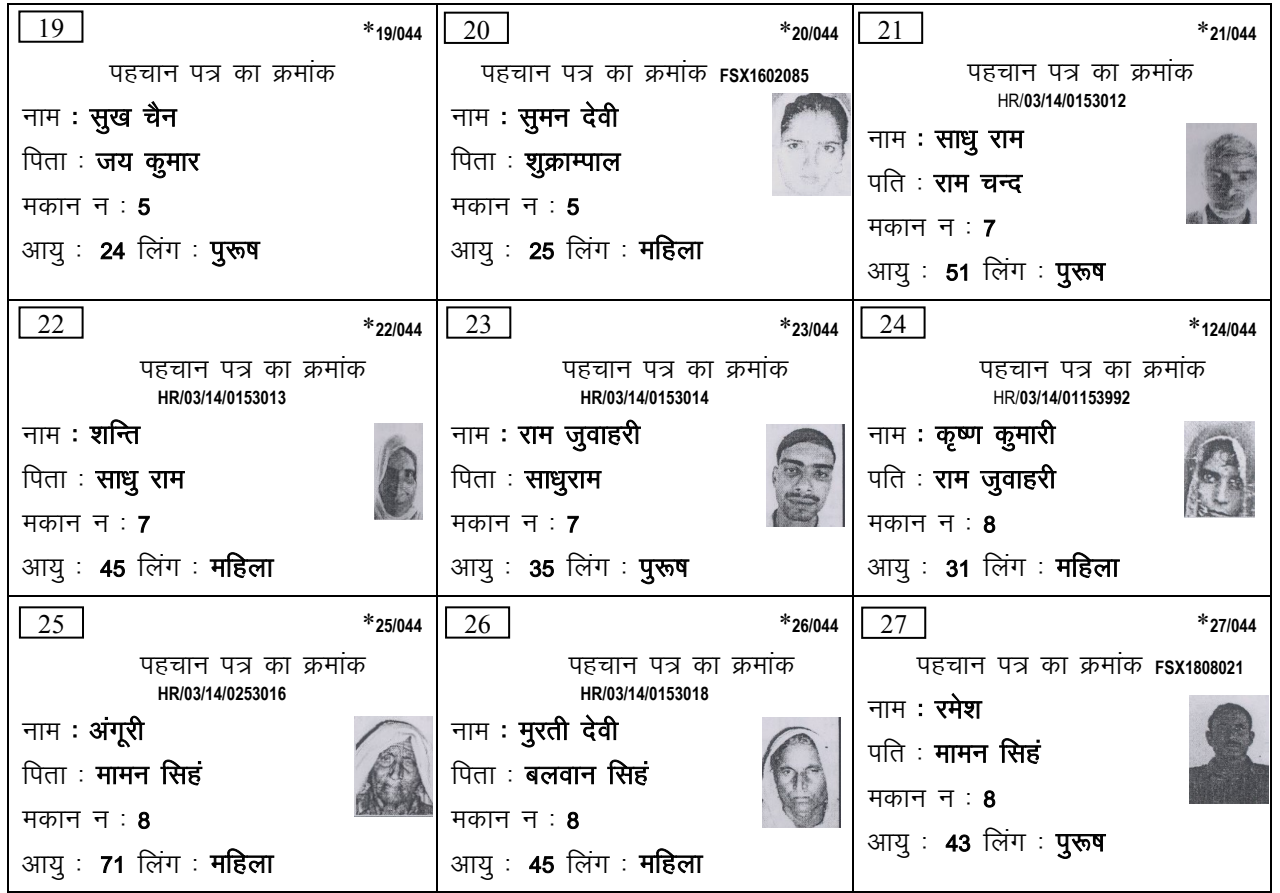 19 *19/044
पहचान पत्र का क्रमांक
नाम : सुख चैन
पिता : जय कुमार
मकान न : 5
आयु : 24 लिंग : पुरूष
20 *20/044
पहचान पत्र का क्रमांक FSX1602085
नाम : सुमन देवी
पिता : शुक्राम्पाल
मकान न : 5
आयु : 25 लिंग : महिला
21 *21/044
पहचान पत्र का क्रमांक
HR/03/14/0153012
नाम : साधु राम
पति : राम चन्द
मकान न : 7
आयु : 51 लिंग : पुरूष
22 *22/044
पहचान पत्र का क्रमांक
HR/03/14/0153013
नाम : शन्ति
पिता : साधु राम
मकान न : 7
आयु : 45 लिंग : महिला
23 *23/044
पहचान पत्र का क्रमांक
HR/03/14/0153014
नाम : राम जुवाहरी
पिता : साधुराम
मकान न : 7
आयु : 35 लिंग : पुरूष
24 *124/044
पहचान पत्र का क्रमांक
HR/03/14/01153992
नाम : कृष्ण कुमारी
पति : राम जुवाहरी
मकान न : 8
आयु : 31 लिंग : महिला
25 *25/044
पहचान पत्र का क्रमांक
HR/03/14/0253016
नाम : अंगूरी
पिता : मामन सिहं
मकान न : 8
आयु : 71 लिंग : महिला
26 *26/044
पहचान पत्र का क्रमांक
HR/03/14/0153018
नाम : मुरती देवी
पिता : बलवान सिहं
मकान न : 8
आयु : 45 लिंग : महिला
27 *27/044
पहचान पत्र का क्रमांक FSX1808021
नाम : रमेश
पति : मामन सिहं
मकान न : 8
आयु : 43 लिंग : पुरूष